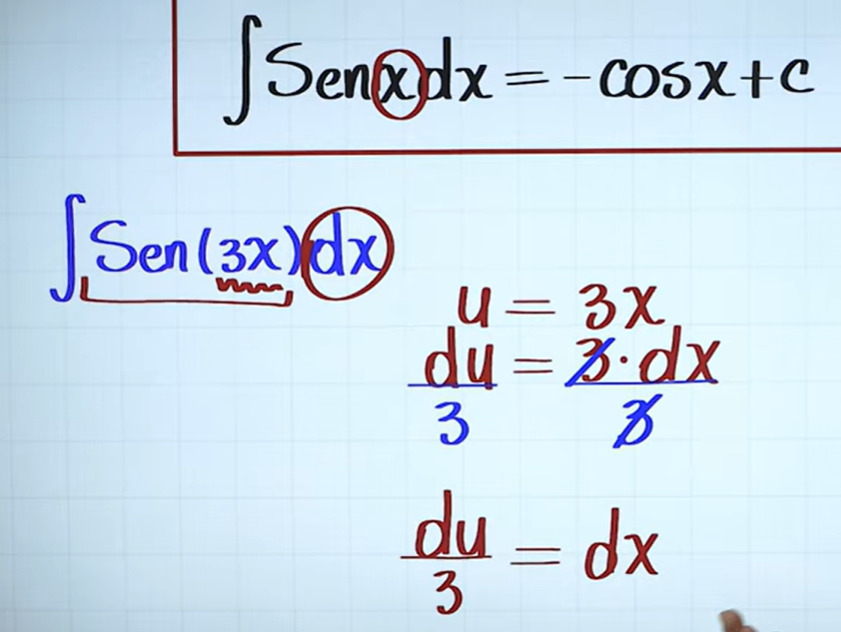 ∫Senxdx = -cosx+c
∫Sen(3x)dx
u = 3x
du/3 = 3·dx/3
du/3 = dx